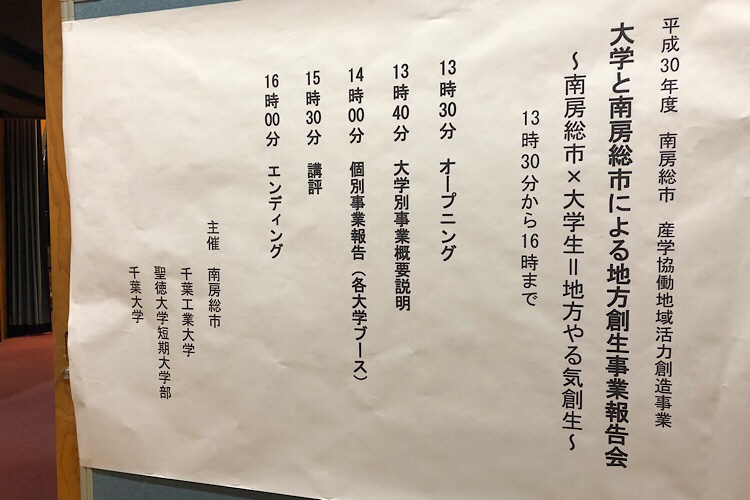 平成30年度　南房総市　産学協働地域活力創造事業
大学と南房総市による地方創生事業報告会
～南房総市×大学生＝地方やる気創生～
13時30分から16時まで
13時30分　オープニング
13時40分　大学別事業概要説明
14時00分　個別事業報告（各大学ブース）
15時30分　講評
16時00分　エンディング
主催　南房総市
千葉工業大学
聖徳大学短期大学部
千葉大学